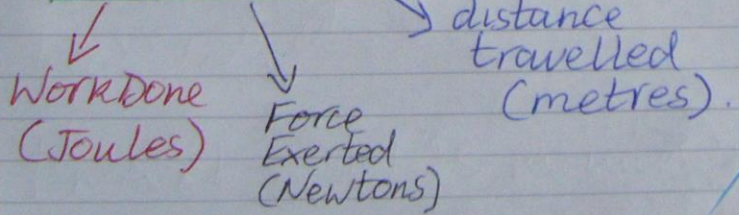 WorkDone
(Joules)
Force
Exerted
(Newtons)
distance
travelled
(metres).